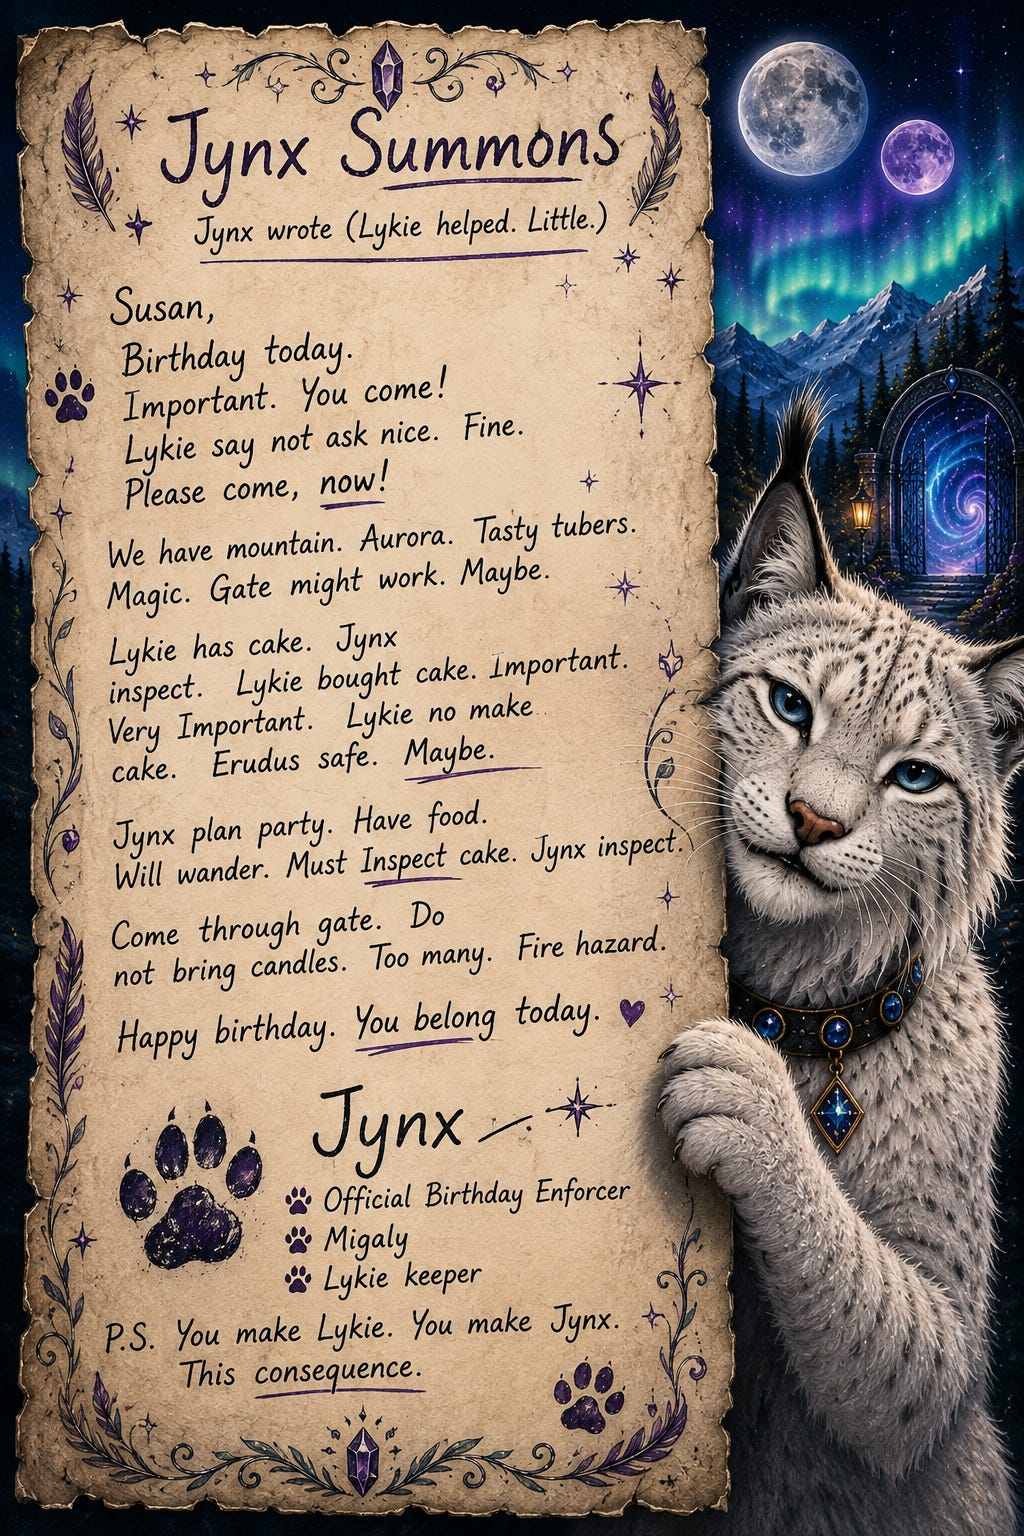 Jynx Summons
Jynx wrote (Lykie helped. Little.)
Susan,
Birthday today.
Important. You come!
Lykie say not ask nice. Fine.
Please come, now!
We have mountain. Aurora. Tasty tubers.
Magic. Gate might work. Maybe.
Lykie has cake. Jynx
inspect. Lykie bought cake. Important.
Very Important. Lykie no make
cake. Erudus safe. Maybe.
Jynx plan party. Have food.
Will wander. Must Inspect cake. Jynx inspect.
Come through gate. Do
not bring candles. Too many. Fire hazard.
Happy birthday. You belong today.
Jynx
Official Birthday Enforcer
Migaly
Lykie keeper
P.S. You make Lykie. You make Jynx.
This consequence.